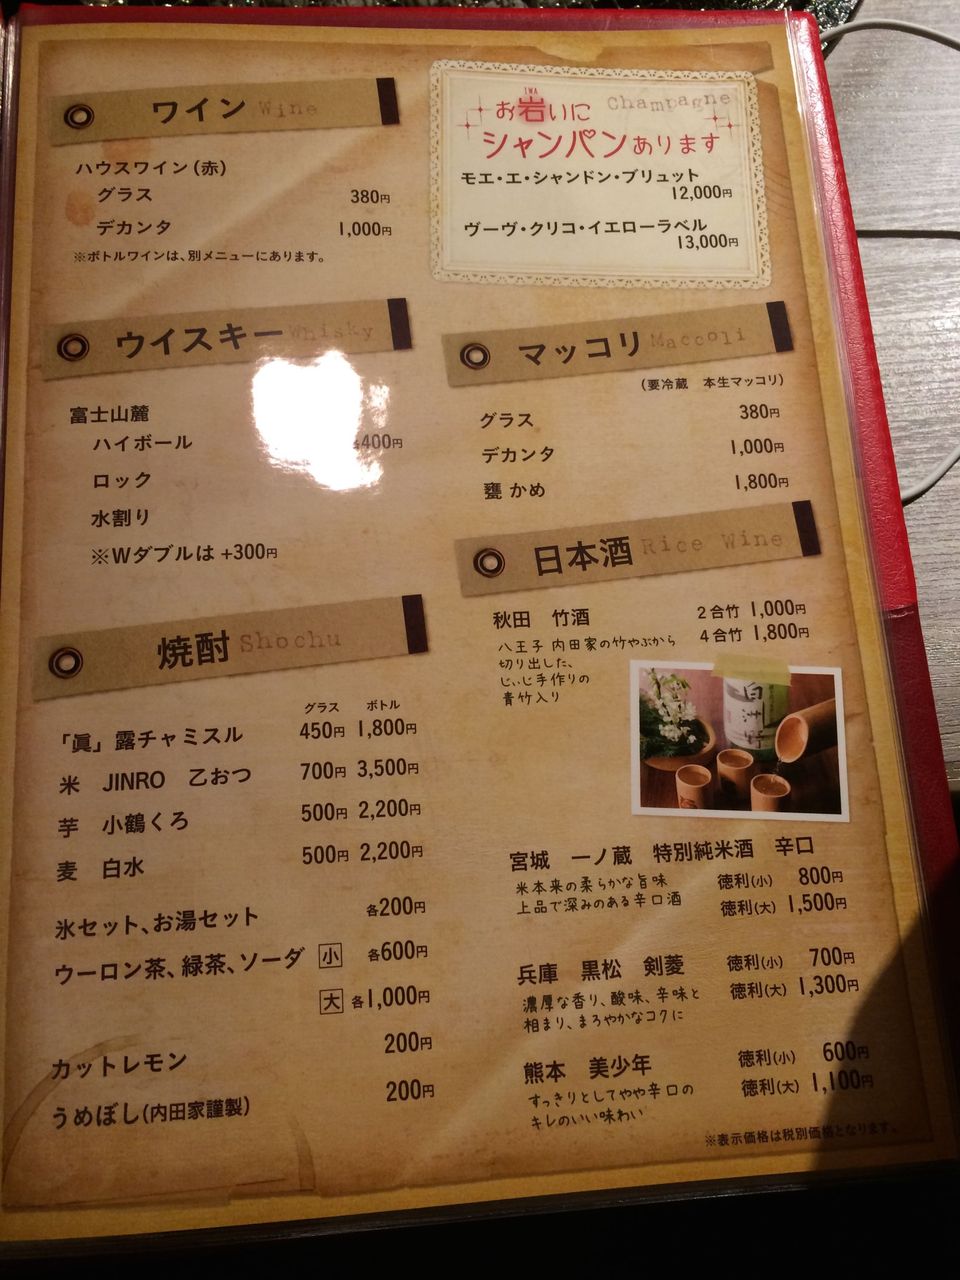 ワイン Wine
ハウスワイン(赤)
グラス 380円
デカンタ 1,000円
※ボトルワインは、別メニューにあります。
IWA
お岩いに Champagne
シャンパンあります
モエ・エ・シャンドン・ブリュット
12,000円
ヴーヴ・クリコ・イエローラベル
13,000円
ウイスキー Whisky
富士山麓
ハイボール 各400円
ロック
水割り
※Wダブルは +300円
マッコリ Maccoli
(要冷蔵 本生マッコリ)
グラス 380円
デカンタ 1,000円
甕 かめ 1,800円
焼酎 Shochu
グラス ボトル
「眞」露チャミスル 450円 1,800円
米 JINRO 乙おつ 700円 3,500円
芋 小鶴くろ 500円 2,200円
麦 白水 500円 2,200円
氷セット、お湯セット 各200円
ウーロン茶、緑茶、ソーダ 小 各600円
大 各1,000円
カットレモン 200円
うめぼし(内田家謹製) 200円
日本酒 Rice Wine
秋田 竹酒 2合竹 1,000円
4合竹 1,800円
八王子 内田家の竹やぶから
切り出した、
じぃじ手作りの
青竹入り
宮城 一ノ蔵 特別純米酒 辛口
米本来の柔らかな旨味 徳利(小) 800円
上品で深みのある辛口酒 徳利(大) 1,500円
兵庫 黒松 剣菱 徳利(小) 700円
濃厚な香り、酸味、辛味と 徳利(大) 1,300円
相まり、まろやかなコクに
熊本 美少年 徳利(小) 600円
すっきりとしてやや辛口の 徳利(大) 1,100円
キレのいい味わい
※表示価格は税別価格となります。